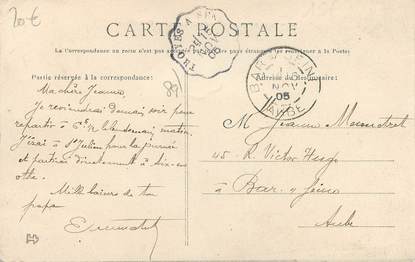 20€
CARTE POSTALE
La correspondance au recto n'est pas acceptée par tous les pays étrangers (Se renseigner à la Poste)
Partie réservée à la correspondance:
Adresse du Destinataire:
TROYES A
NOV
05
BAR-S-SEINE
NOV
05
AUBE
Ma chère Jeanne
Je reviendrai demain soir pour
repartir à le lendemain matin.
J'irai à St Julien pour la journée
et partirai directement à
othe.
Mille baisers de ton
papa
M Jeanne
45 R. Victor Hugo
à Bar s/ Seine
Aube